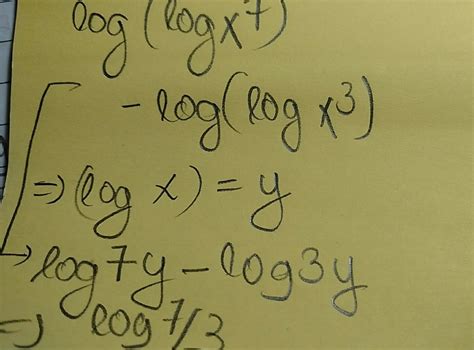 log(logx⁷)
-log(log x³)
=> (log x) = y
→ log7y - log3y
=> log 7/3